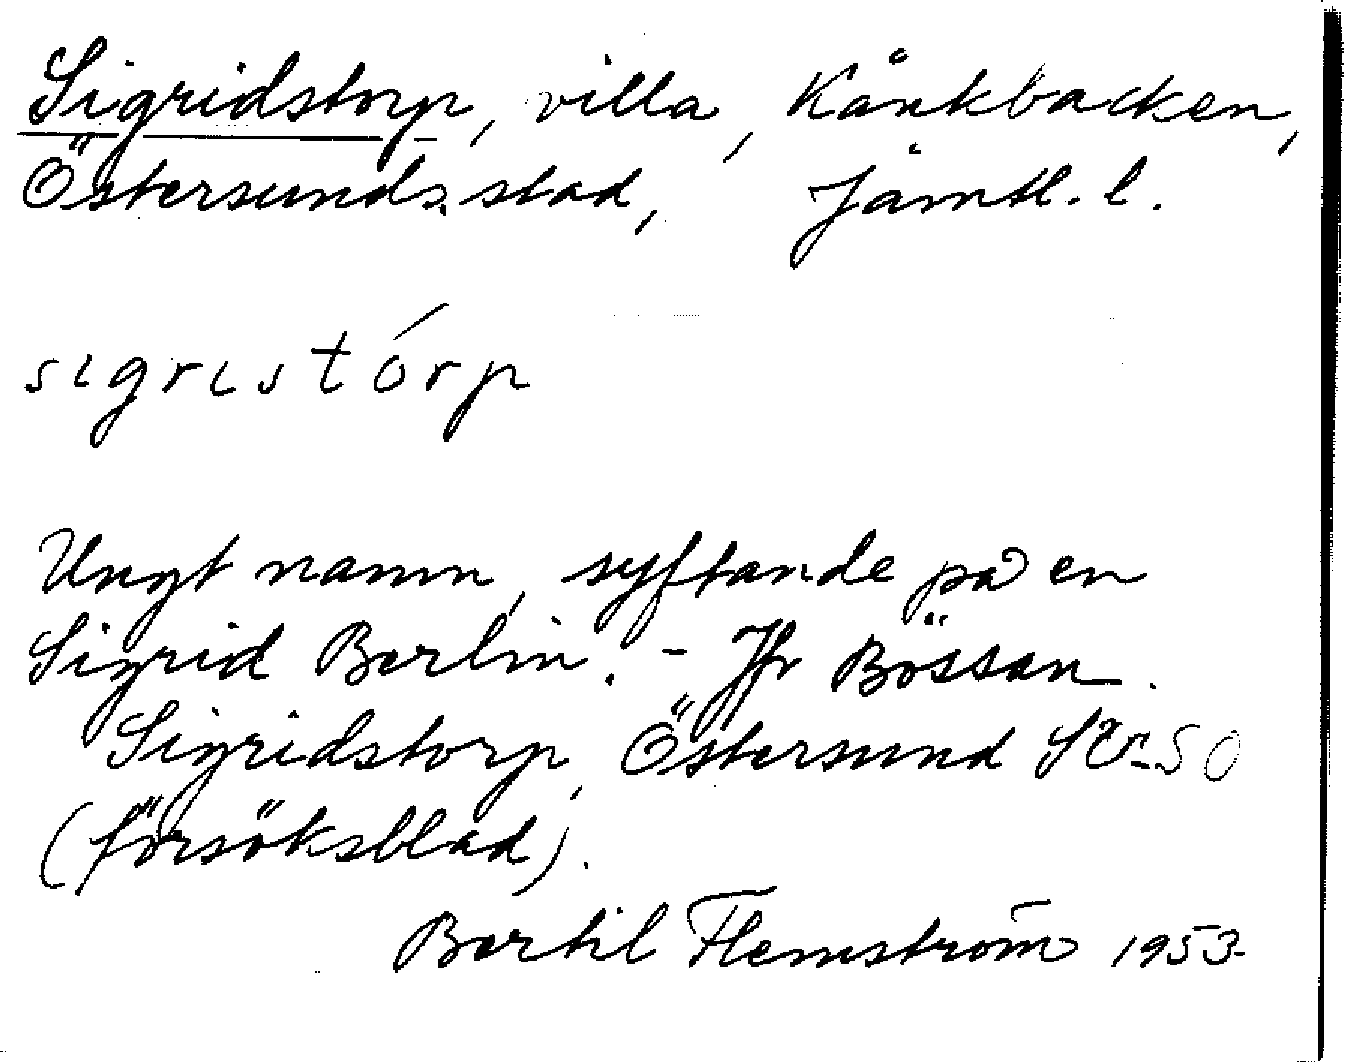 Sigridstorp, villa, Kånkbacken,
Östersunds stad, Jämtl. l.
sigristórp
Ungt namn, syftande på en
Sigrid Berlin. - Jfr Bössan.
Sigridstorp, Östersund SV 50
(försöksblad).
Bertil Flemström 1953